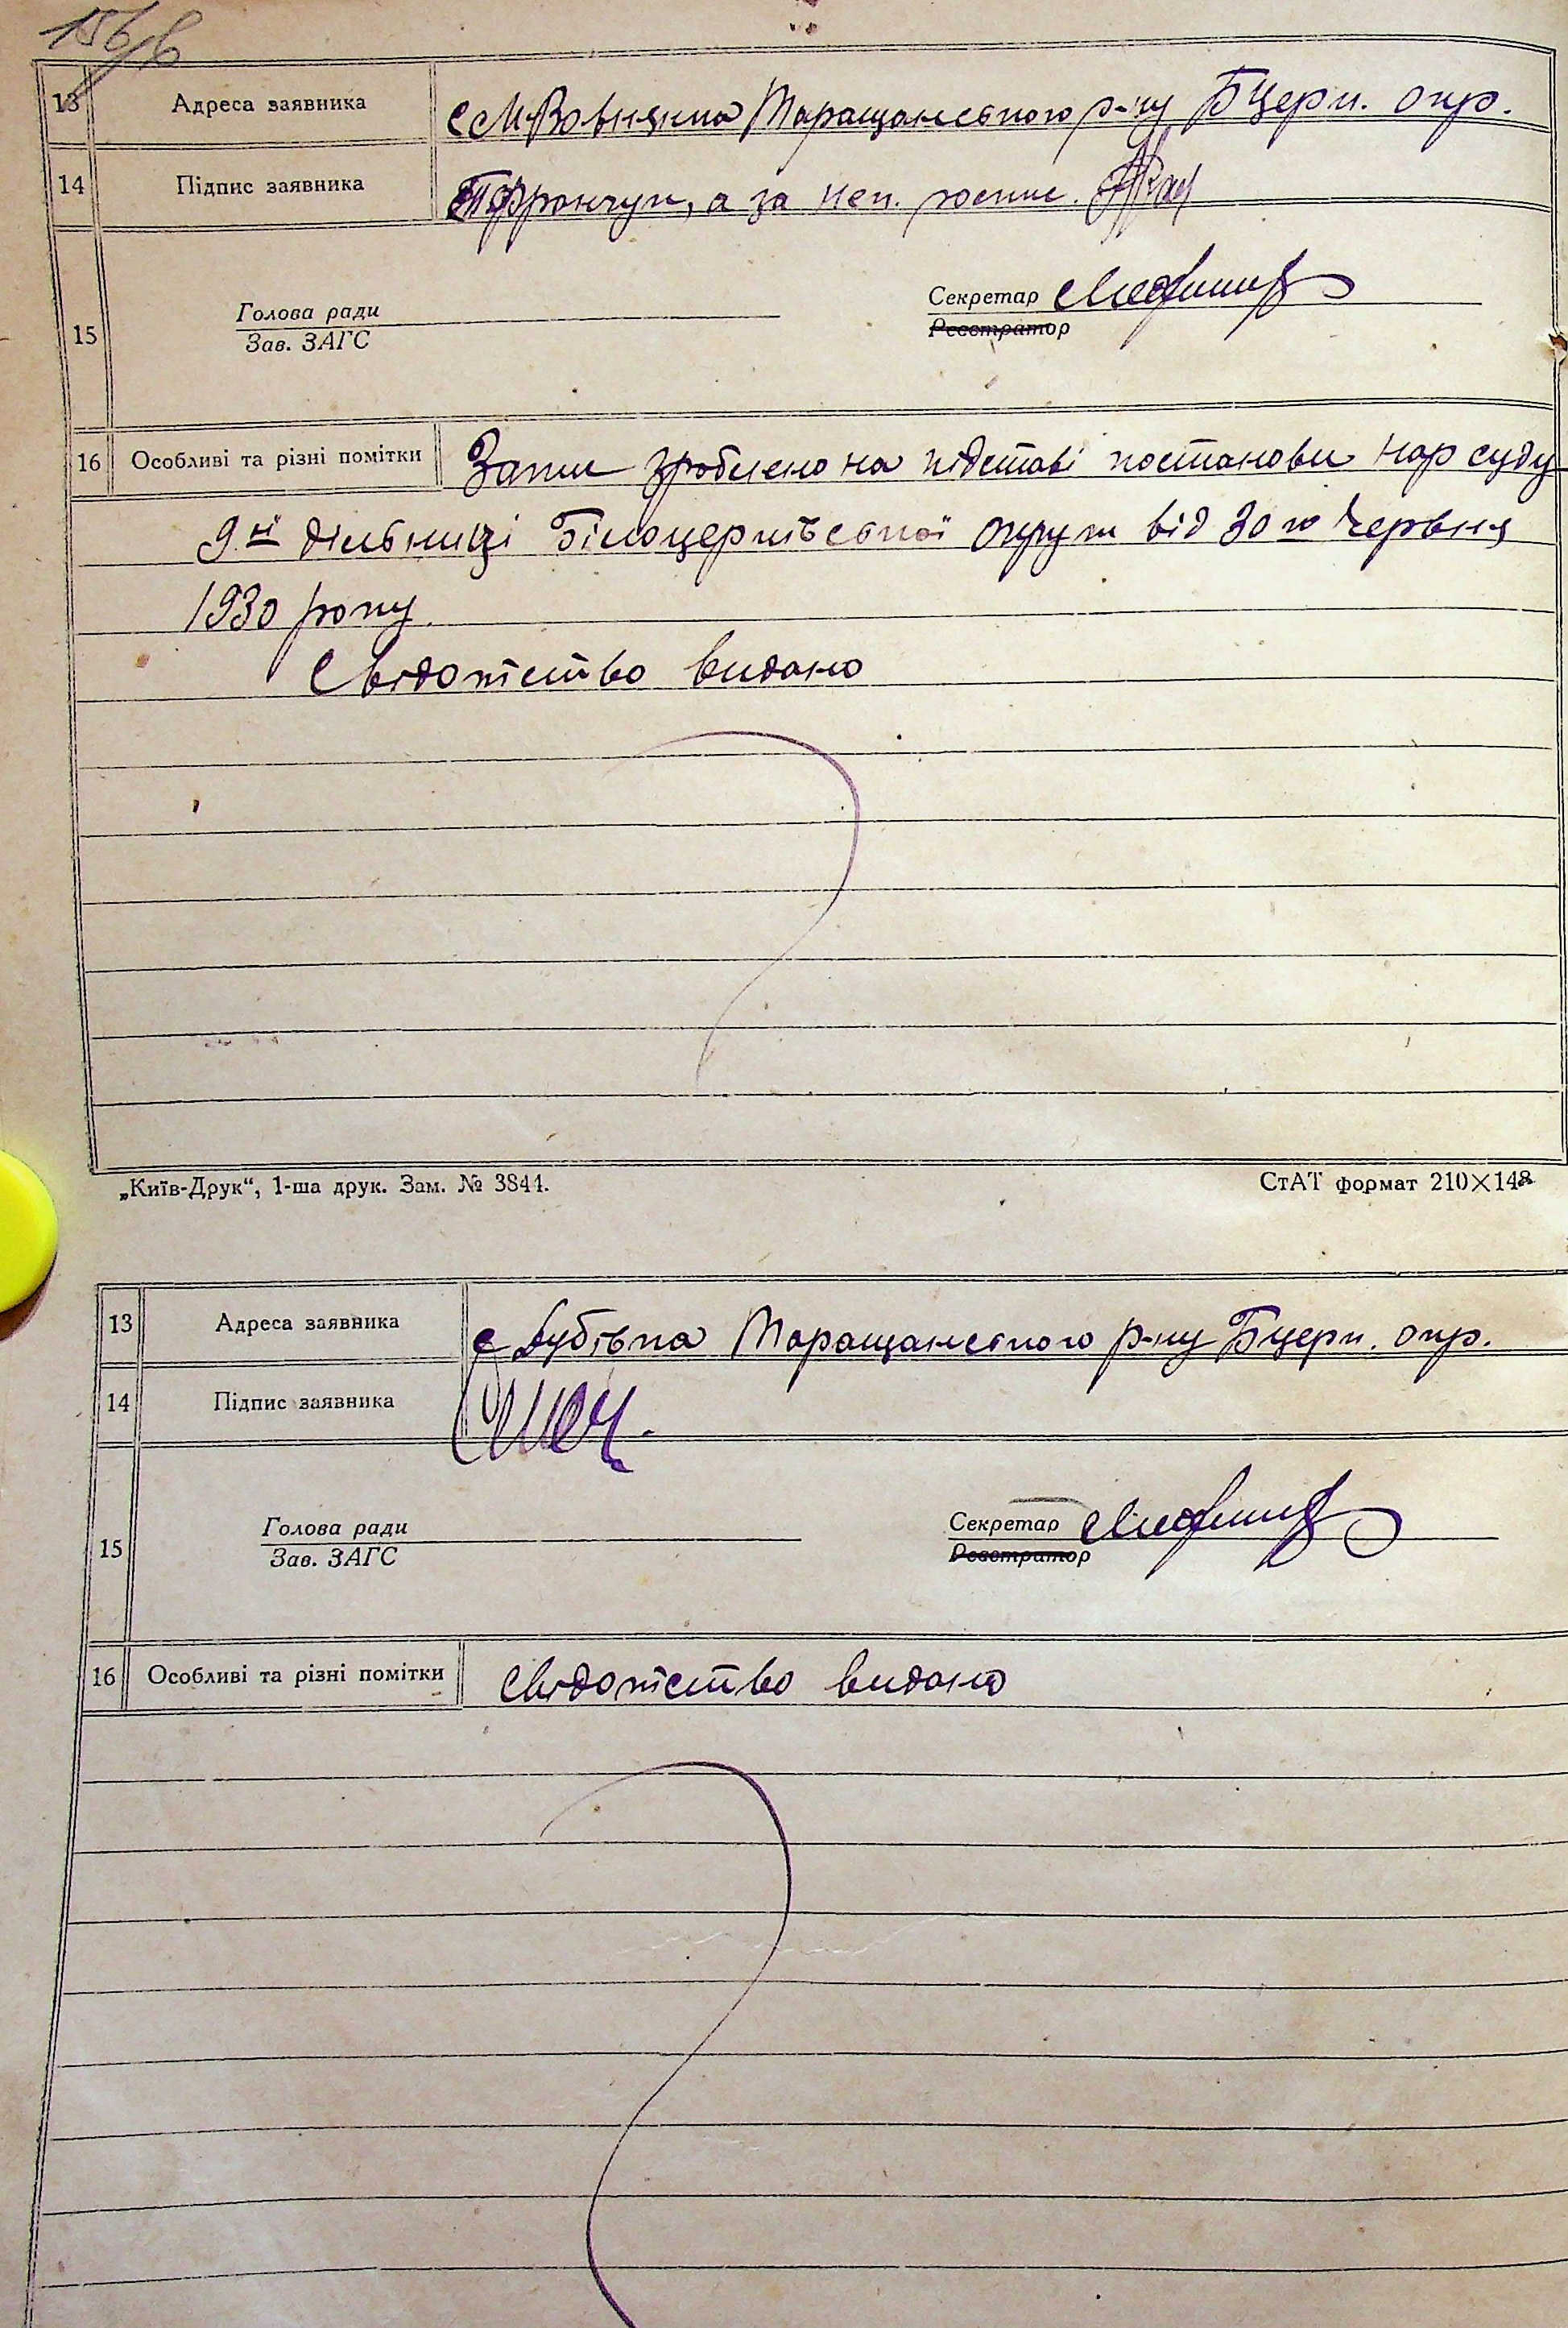 13 Адреса заявника с М-Вовнянка Таращанського р-ну БЦерк. окр.
14 Підпис заявника Франчук, а за неп. розпис.
Голова ради Секретар
15 Зав. ЗАГС Реєстратор
16 Особливі та різні помітки Запис зроблено на підставі постанови Нар суду
9-ї дільниці Білоцерківської округи від 30 го Червня
1930 року.
Свідотство видано
„Київ-Друк“, 1-ша друк. Зам. № 3844. СтАТ формат 210×148
13 Адреса заявника с Лубівка Таращанського р-ну БЦерк. окр.
14 Підпис заявника
Голова ради Секретар
15 Зав. ЗАГС Реєстратор
16 Особливі та різні помітки Свідотство видано